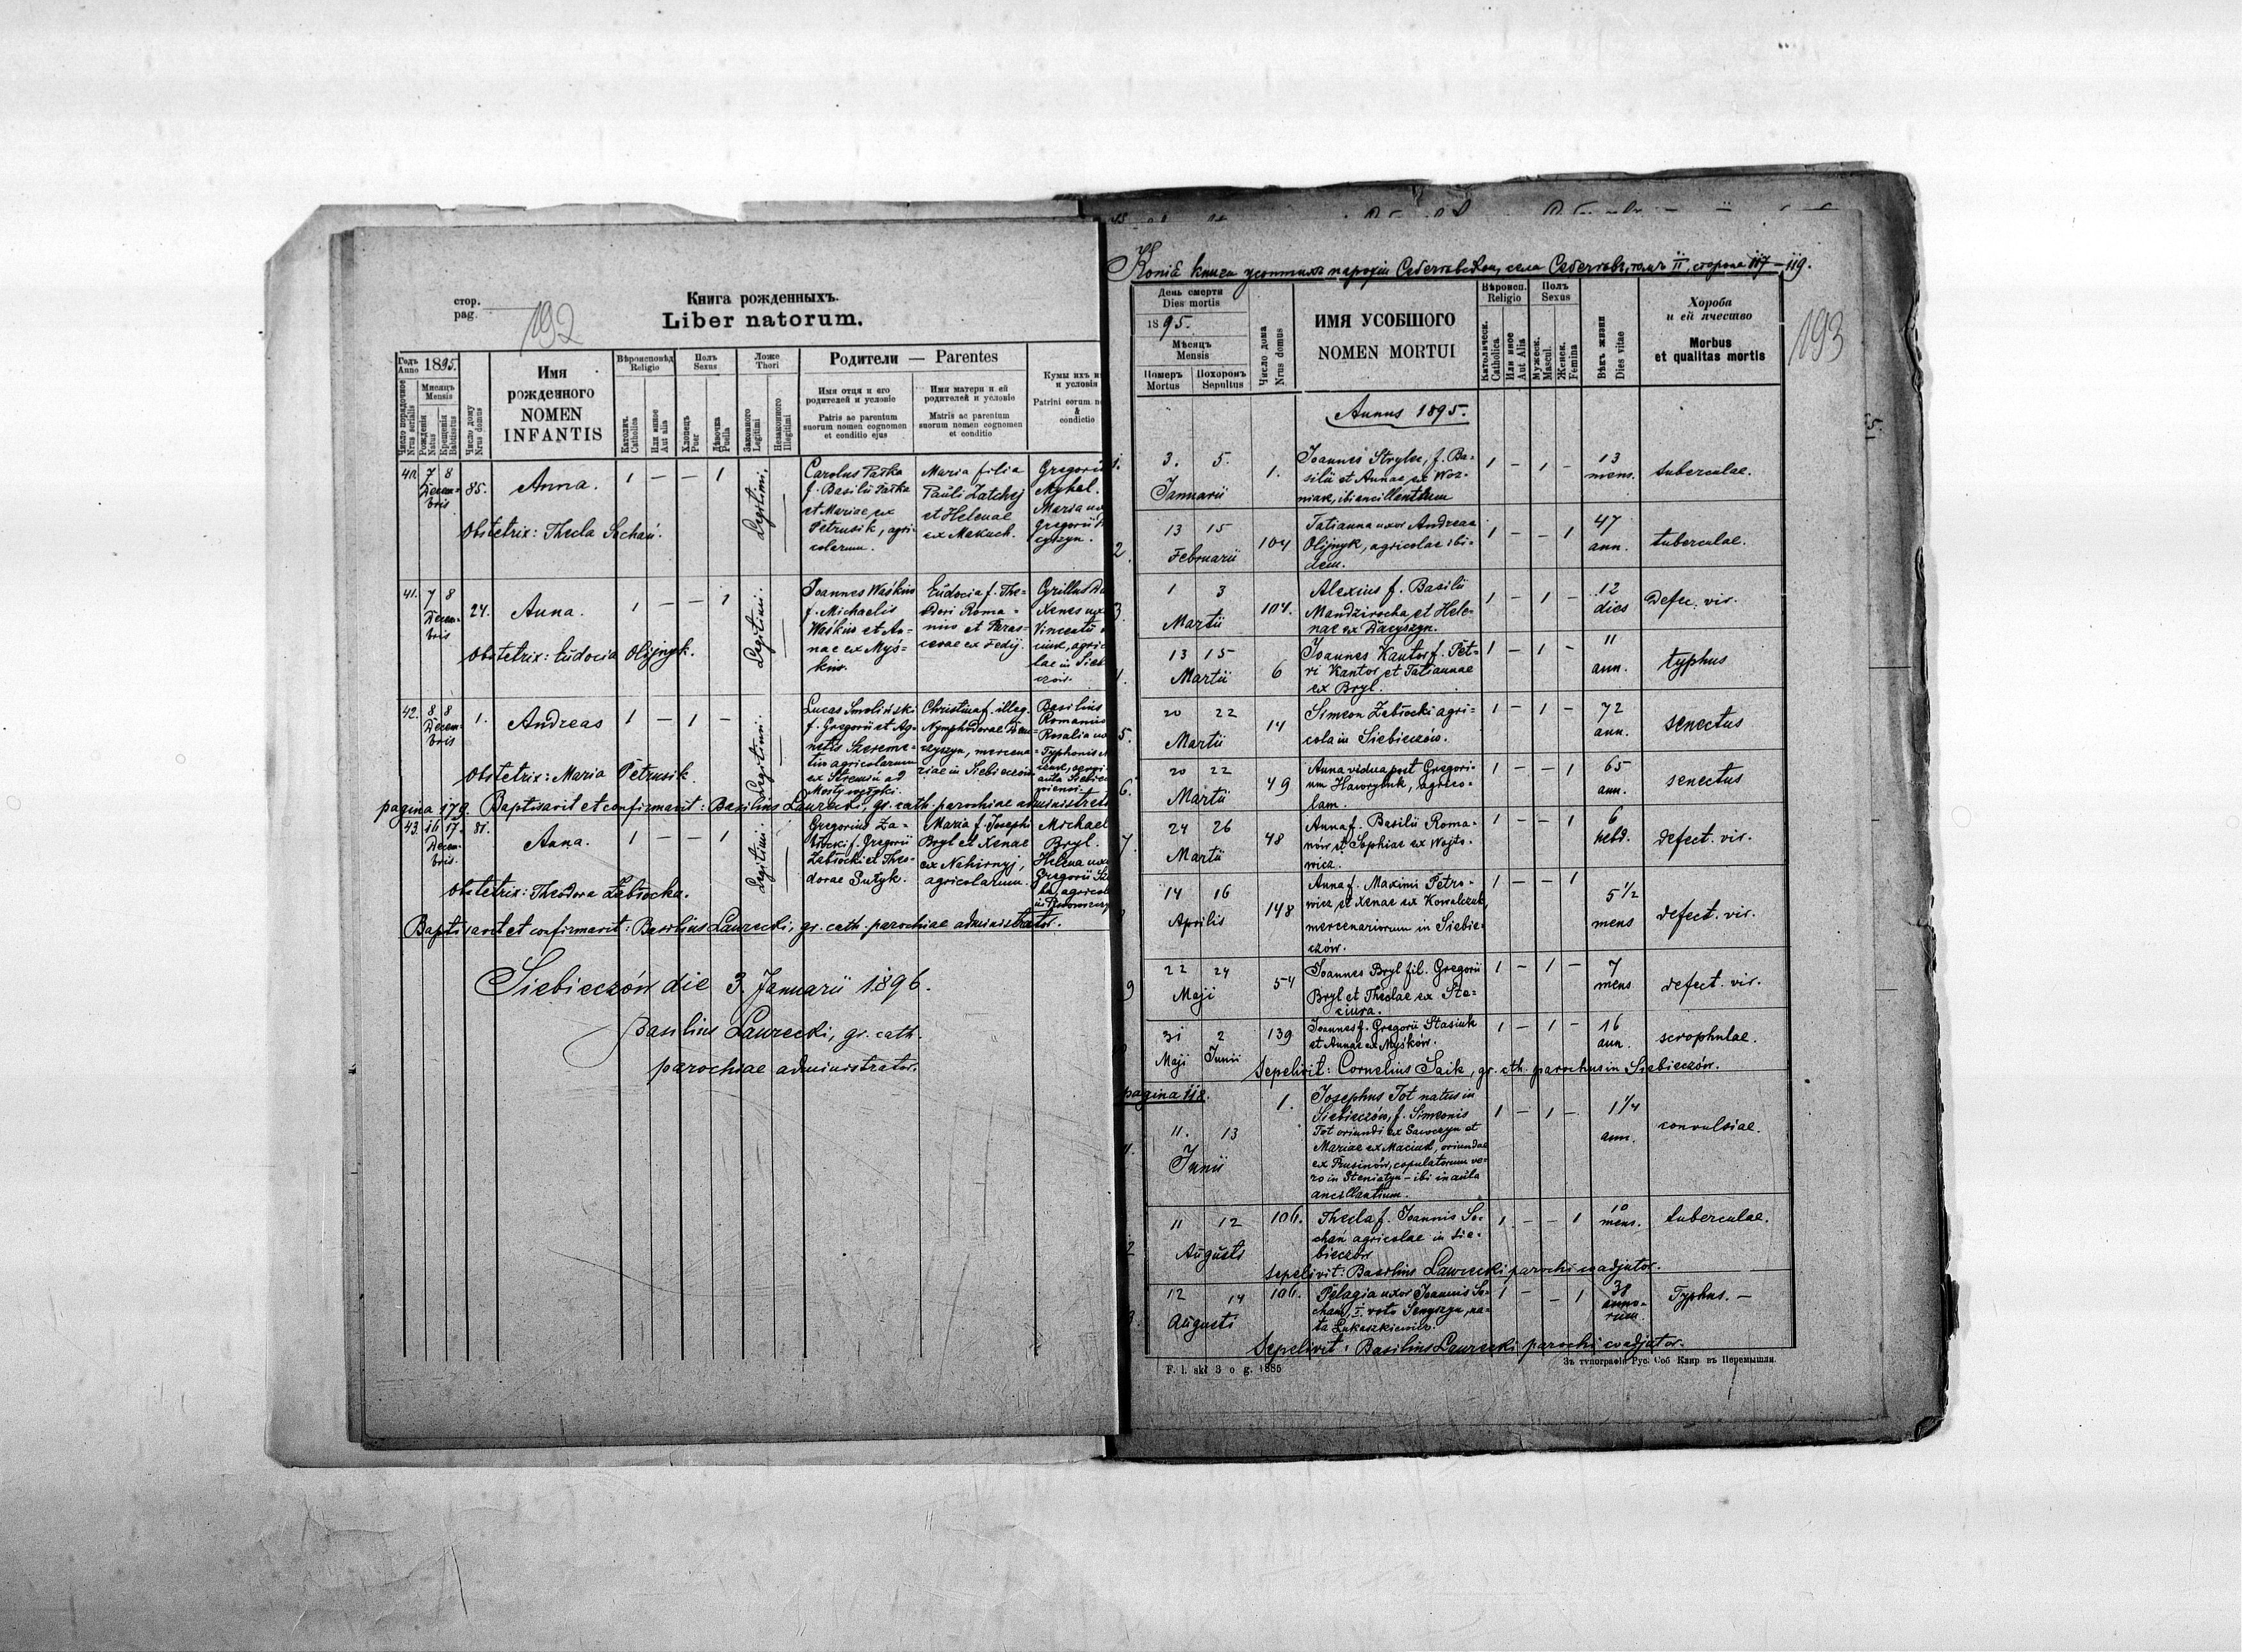 стор.
pag.
192
Книга рожденныхъ.
Liber natorum.
Годъ Anno 1895.
Число порядочное
Nrus serialis
Мѣсяцъ
Mensis
Рожденія
Natus
Крещенія
Babtisatus
Число дому
Nrus domus
Имя
рожденного
NOMEN
INFANTIS
Вѣроисповѣд
Religio
Католич.
Catholica
Или инне
Aut alia
Полъ
Sexus
Хлопецъ
Puer
Дѣвочка
Puella
Ложе
Thori
Законного
Legitimi
Незаконного
Illegitimi
Родители — Parentes
Имя отця и его
родителей и условіе
Patris ac parentum
suorum nomen cognomen
et conditio ejus
Имя матери и ей
родителей и условіе
Matris ac parentum
suorum nomen cognomen
et conditio
Кумы ихъ
и условія
Patrini eorum
&
condictio
7 8
Decem-
bris
85.
Anna.
1 — — 1
Legitimi.
Carolus Paśka
f. Basilii Paśka
et Mariae ex
Petrusik, agri-
colarum.
Maria filia
Pauli Zatchej
et Helenae
ex Makuch.
Mychal.
Maria
Obstetrix: Thecla Sochań.
41.
7 8
Decem-
bris
24.
Anna.
1 — — 1
Legitimi.
Joannes Waśkiw
f. Michaelis
Waśkiw et An-
nae ex Myś-
kiw.
Eudocia f. The-
odori Roma-
niw et Paras-
cevae ex Fedij.
Cyrillus
Xenes
Vincentii
Obstetrix: Eudocia Olijnyk.
42.
8 8
Decem-
bris
1.
Andreas
1 — 1 —
Legitimi.
Lucas Smoliński
f. Gregorii et Ag-
netis Szereme-
tiw agricolarum
ex Stremiń ad
Mosty wielki.
Christina f. illeg.
Nymphodorae
mercena-
riae in Siebieczów
Basilius
Romaniw
Rosalia
Obstetrix: Maria Petrusik.
pagina 179. Baptisavit et confirmavit: Basilius Laurecki, gr. cath. parochiae administrator
43.
16 17
Decem-
bris.
81.
Anna.
1 — — 1
Legitimi.
Gregorius Za-
błocki f. Gregorii
Zabłocki et Theo-
dorae Sużyk.
Maria f. Josephi
Bryl et Xenae
ex Nahirnyj,
agricolarum.
Michael
Bryl.
Helena
Gregorii
Obstetrix: Theodora Zabłocka.
Baptisavit et confirmavit: Basilius Laurecki, gr. cath. parochiae administrator.
Siebieczów die 3. Januarii 1896.
Basilius Laurecki, gr. cath.
parochiae administrator.
Копіѣ книги усопшихъ парохіи Себечовской, села Себечовъ, томъ II, сторона 117-119.
193
День смерти
Dies mortis
1895.
Мѣсяцъ
Mensis
Померъ
Mortus
Похоронъ
Sepultus
Число дома
Nrus domus
ИМЯ УСОБШОГО
NOMEN MORTUI
Вѣроисп.
Religio
Католическ.
Catholica.
Или иное
Aut Alia
Полъ
Sexus
Мужеск.
Mascul.
Женск.
Femina
Вѣкъ жизни
Dies vitae
Хороба
и ей лчество
Morbus
et qualitas mortis
Annus 1895.
1.
3. 5.
Januarii
1.
Joannes Stryler, f. Ba-
silii et Annae ex Woz-
niak, ibi ancillantium
1 — 1 —
13
mens.
tuberculae.
2
13 15
Februarii
104
Tatianna uxor Andreae
Olijnyk, agricolae ibi-
dem.
1 — — 1
47
ann.
tuberculae.
3.
1 3
Martii
104.
Alexius f. Basilii
Mandzirocha et Hele-
nae ex Dacyszyn.
1 — 1 —
12
dies
defec. vir.
13 15
Martii
6
Joannes Kantor f. Pet-
ri Kantor et Tatiannae
ex Bryl.
1 — 1 —
11
ann.
typhus
5.
20 22
Martii
14
Simeon Zabłocki agri-
cola in Siebieczów.
1 — 1 —
72
ann.
senectus
6.
20 22
Martii
49
Anna vidua post Gregori-
um Hawrybuk, agrico-
lam.
1 — — 1
65
ann.
senectus
7
24 26
Martii
48
Anna f. Basilii Roma-
nów et Sophiae ex Wojto-
wicz.
1 — — 1
6
hebd.
defect. vir.
14 16
Aprilis
148
Anna f. Maximi Petro-
wicz et Xenae ex Kowalczuk,
mercenariorum in Siebie-
czów.
1 — — 1
5 1/2
mens
defect. vir.
9
22 24
Maji
54
Joannes Bryl fil. Gregorii
Bryl et Theclae ex Sta-
ciura.
1 — 1 —
7
mens
defect. vir.
31 2
Maji Junii
139
Joannes f. Gregorii Stasiuk
et Annae ex Myśków.
1 — 1 —
16
ann.
scrophulae.
Sepelivit: Cornelius Saik, gr. cth. parochus in Siebieczów.
pagina 118.
11. 13
Junii
1.
Josephus Tot natus in
Siebieczów, f. Simeonis
Tot oriundi ex Sawczyn et
Mariae ex Maciuk, oriundae
ex Rusinów, copulatorum ve-
ro in Steniatyn — ibi in aula
ancillantium.
1 — 1 —
1 1/4
ann.
convulsiae.
2
11 12
Augusti
106.
Thecla f. Joannis So-
chań agricolae in Sie-
bieczów
1 — — 1
10
mens.
tuberculae.
Sepelivit: Basilius Lawrecki parochi coadjutor.
3.
12 14
Augusti
106.
Pelagia uxor Joannis So-
chań, I voto Senyszyn, na-
ta Łukaszkiewicz.
1 — — 1
38
anno-
rum.
Typhus. —
Sepelivit: Basilius Laurecki parochi coadjutor.
F. l. skl 3 o g. 1885
Зъ типографіи Рус. Соб Клир въ Перемышли.